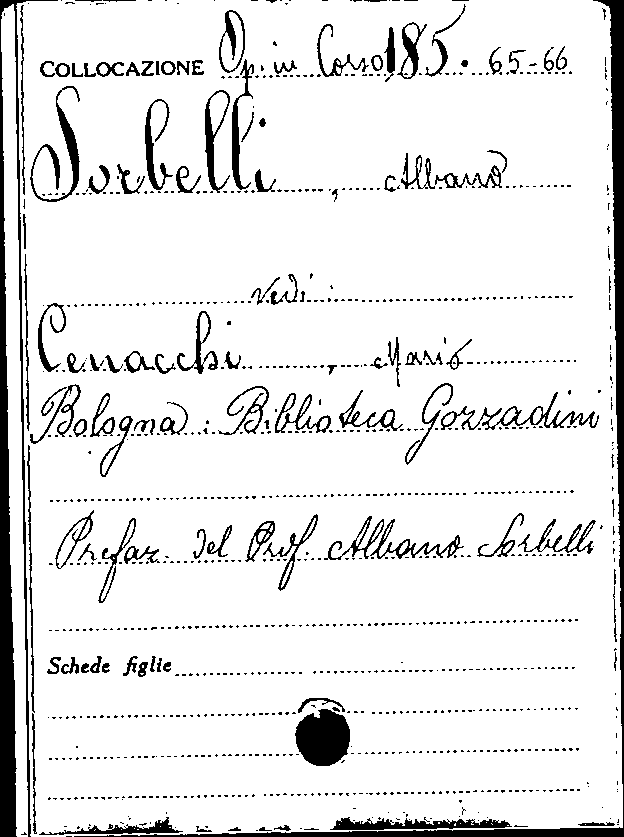 COLLOCAZIONE Op. in Corso, 185. 65-66
Sorbelli, Albano
Vedi:
Cenacchi, Mario
Bologna: Biblioteca Gozzadini
Prefaz. del Prof. Albano Sorbelli
Schede figlie